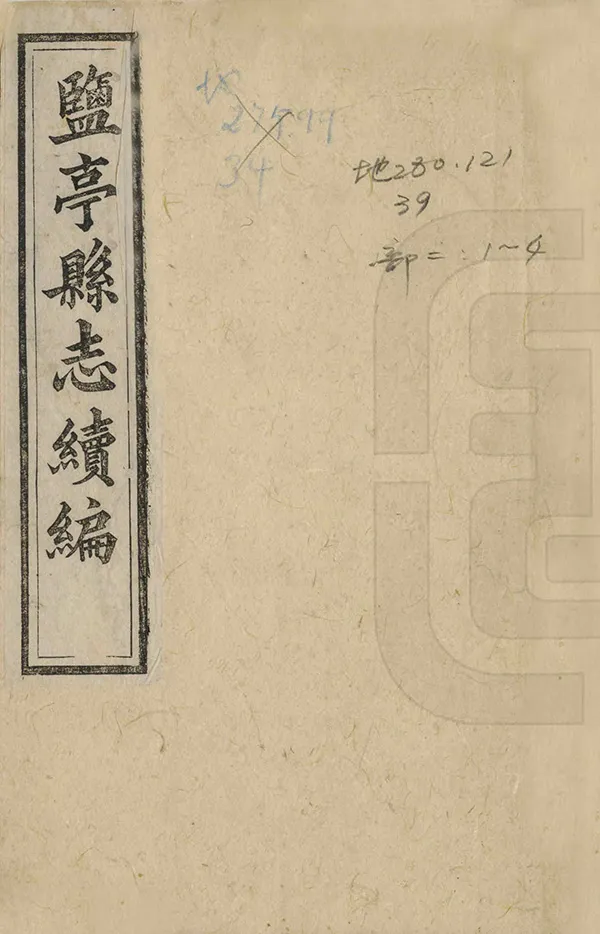 鹽亭縣志續編
地
277.99
34
地280.121
39
部二:1~4